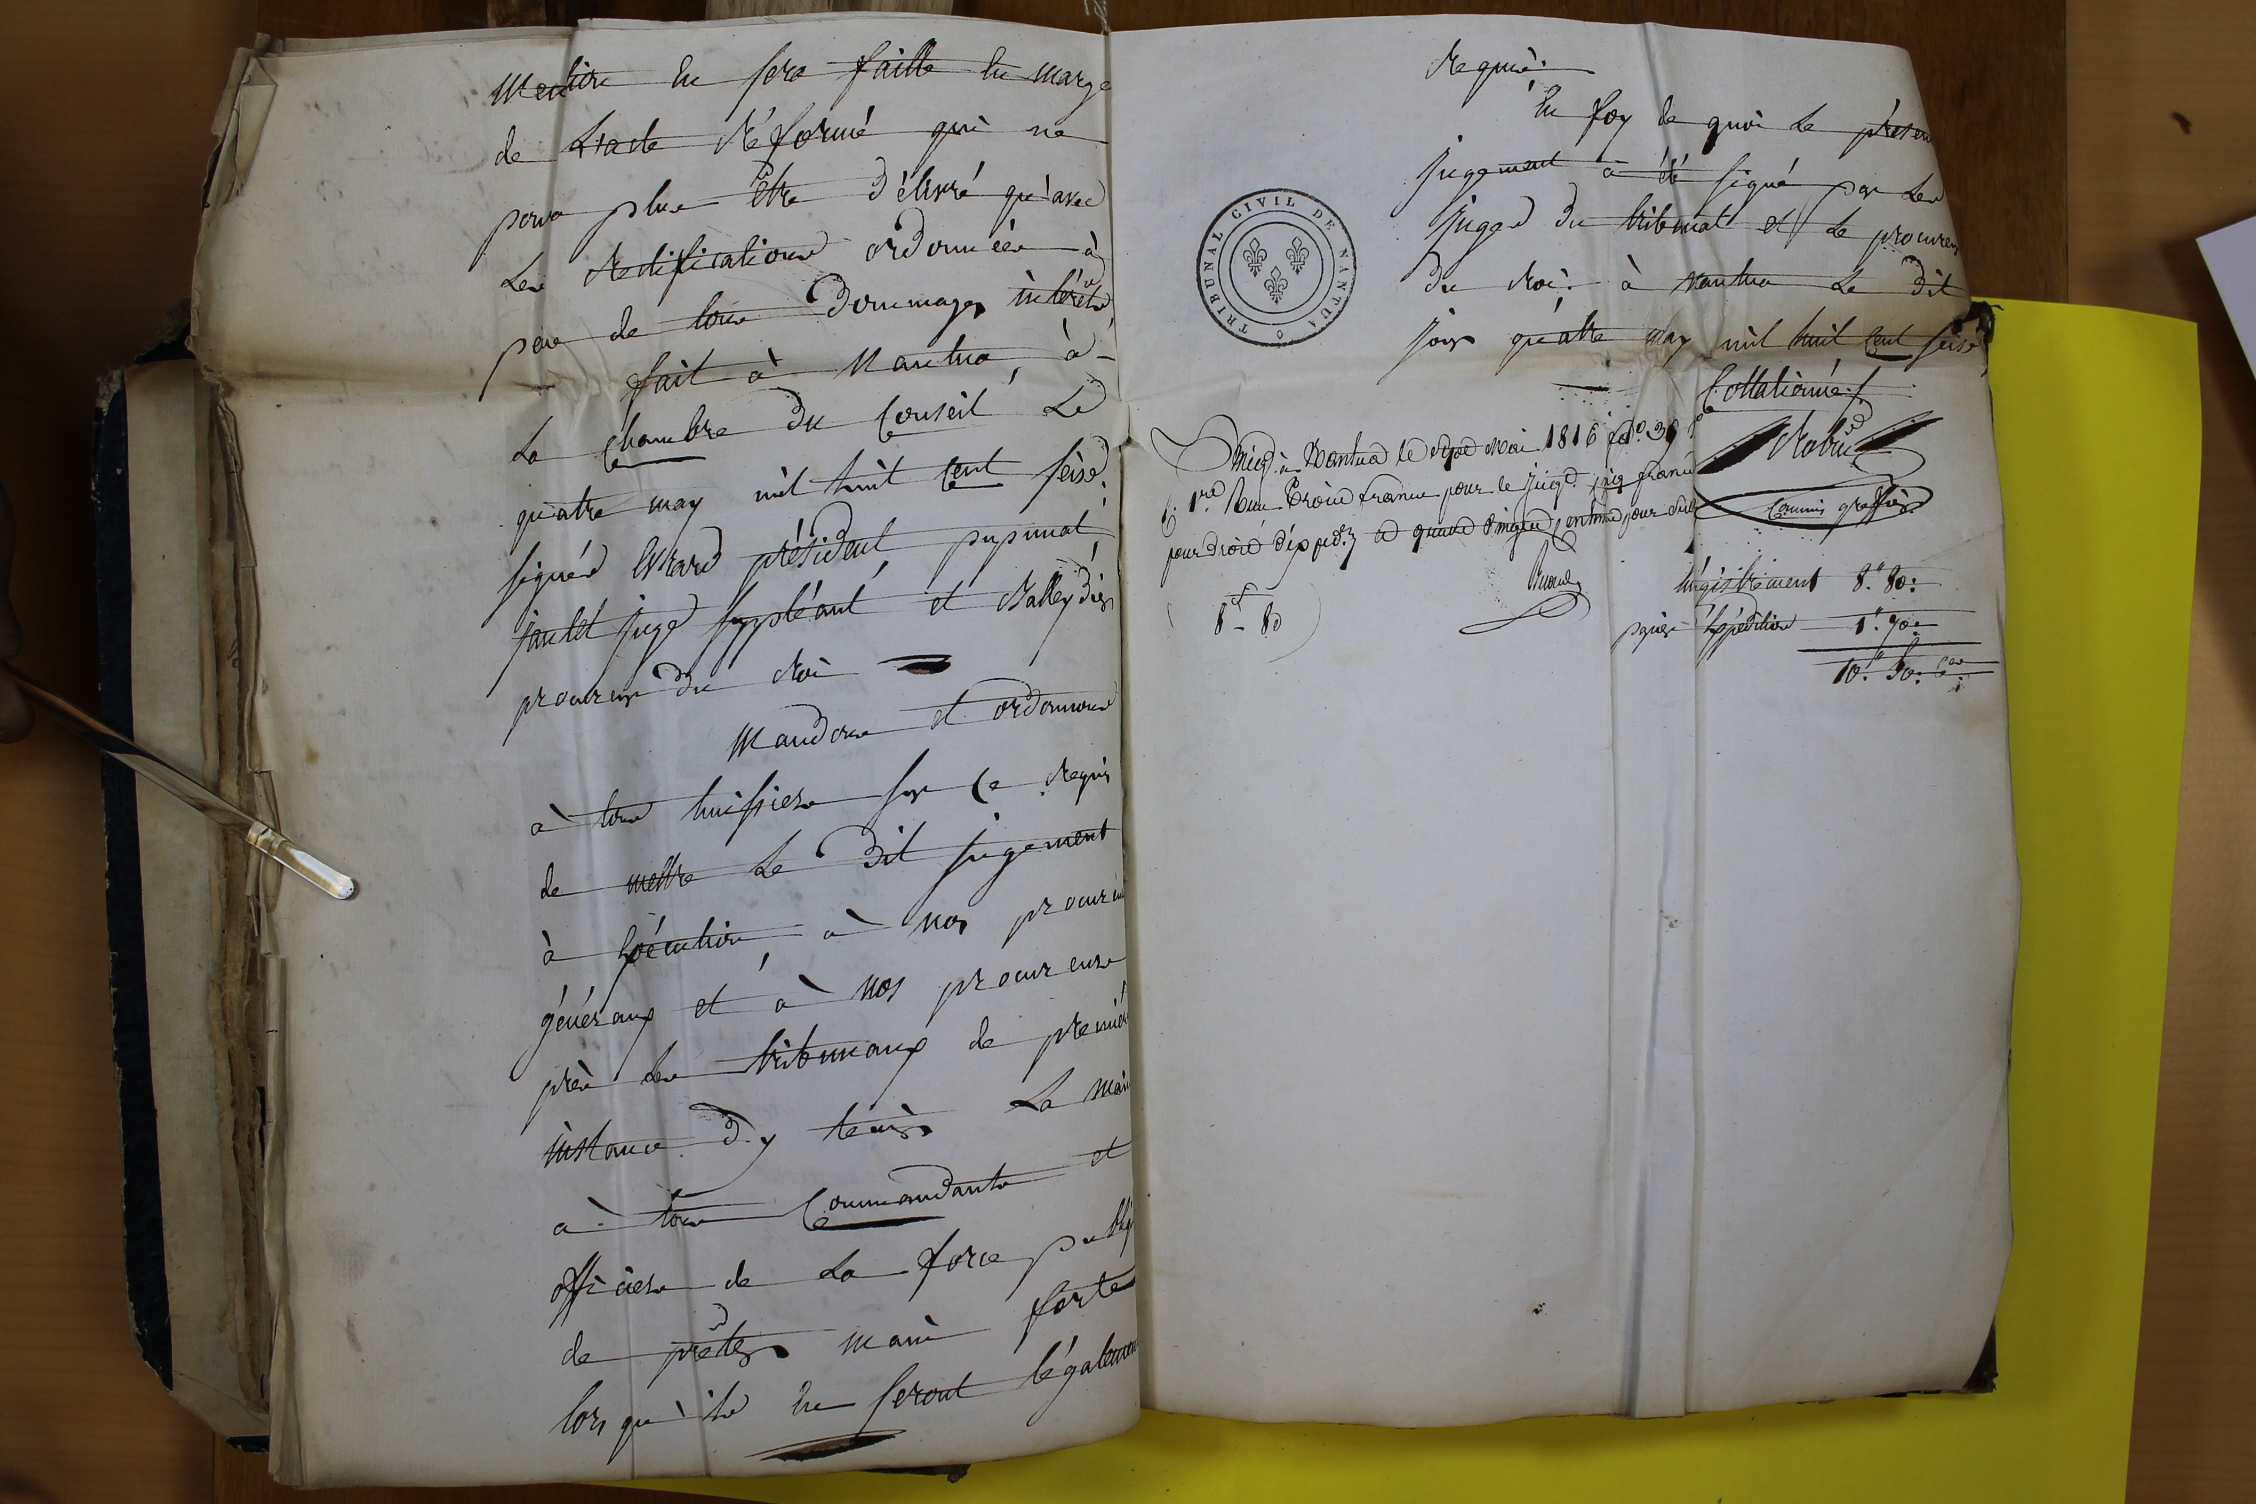 Mention en sera faitte en marge
de L'acte Réformé qui ne
poura plus être d'élivré qu'avec
Les Rectifications ordonnées à
pene de tous Dommages intérêts,
fait à Nantua, à
La Chambre du Conseil Le
quatre may mil huit Cent Seise.
signés Evrard président, pupunat,
jantet juge suppléant, et Ralleydier
procureur du Roi
Mandons et ordonnons
à tous huissiers sur Ce Requis
de mettre Le Dit jugement
à Exécution, à nos procureurs
généraux et à nos procureurs
près Les tribunaux de première
instance d'y tenir La main
à tous Commandants et
officiers de La force publiq
de prêter main forte
lors qu'ils En seront légalement
Requis.
En foy de quoi Le présent
jugement à été signé par Les
juges du tribunal et Le procureur
du Roi. à nantua Le Dit
jour quatre may mil huit Cent seise
TRIBUNAL CIVIL DE NANTUA
Collationné
Robin
Commis greffier
à Nantua le Mai 1816 fo. 39
C. 1re Reçu trois francs pour le jugt. cinq francs
pour droit d'expedon. et quatre vingts centimes pour sub
8f - 80
Enregistrement 8.# 80.
papier Expédition 1.# 70.
10.# 50. Ces